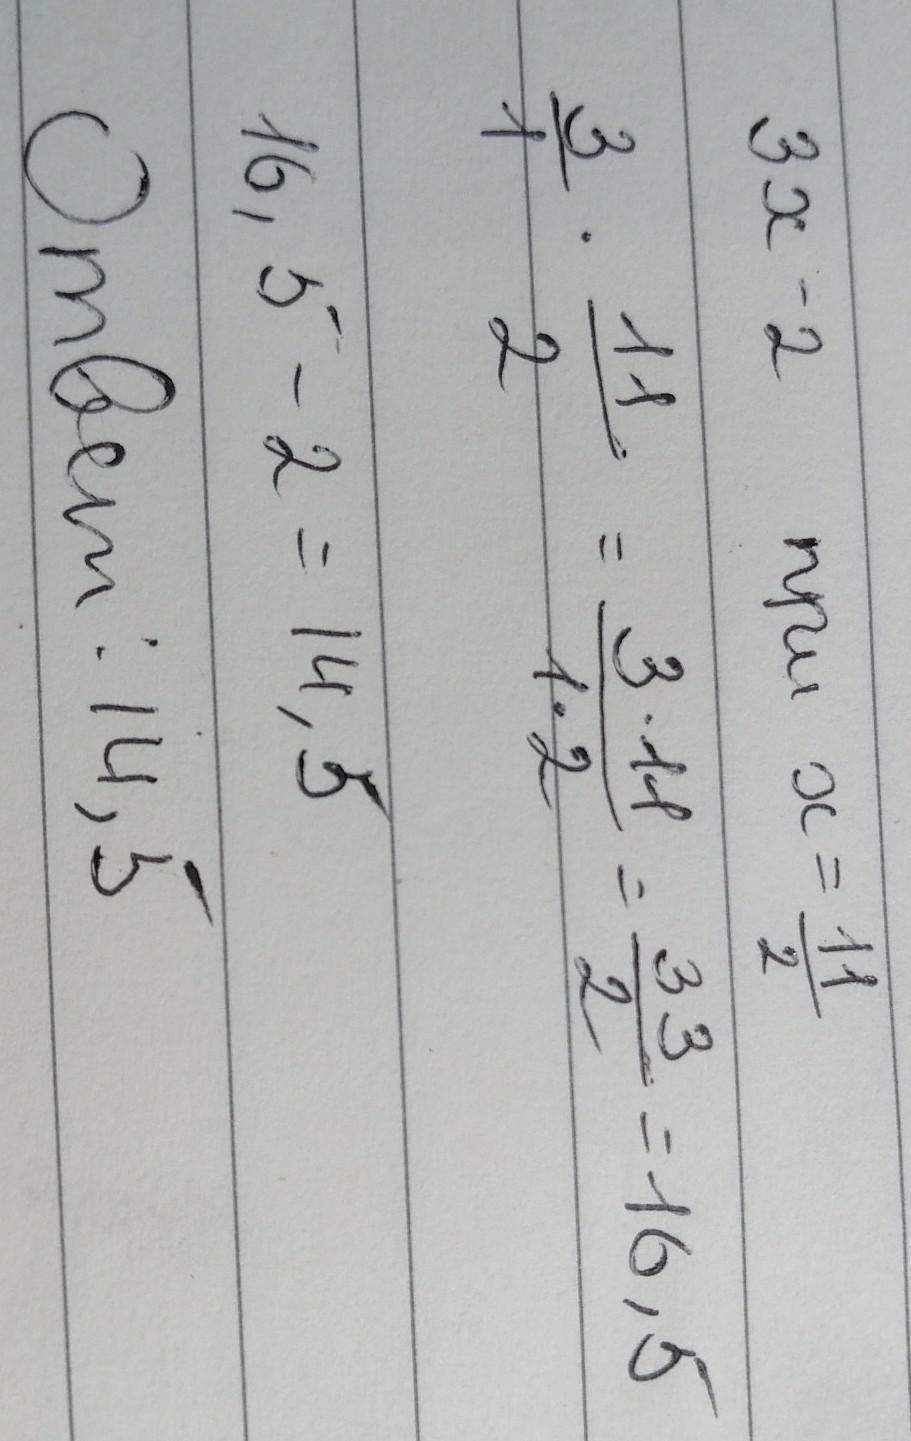 3x - 2 при x = 11/2
3/1 · 11/2 = 3·11/1·2 = 33/2 = 16,5
16,5 - 2 = 14,5
Ответ: 14,5